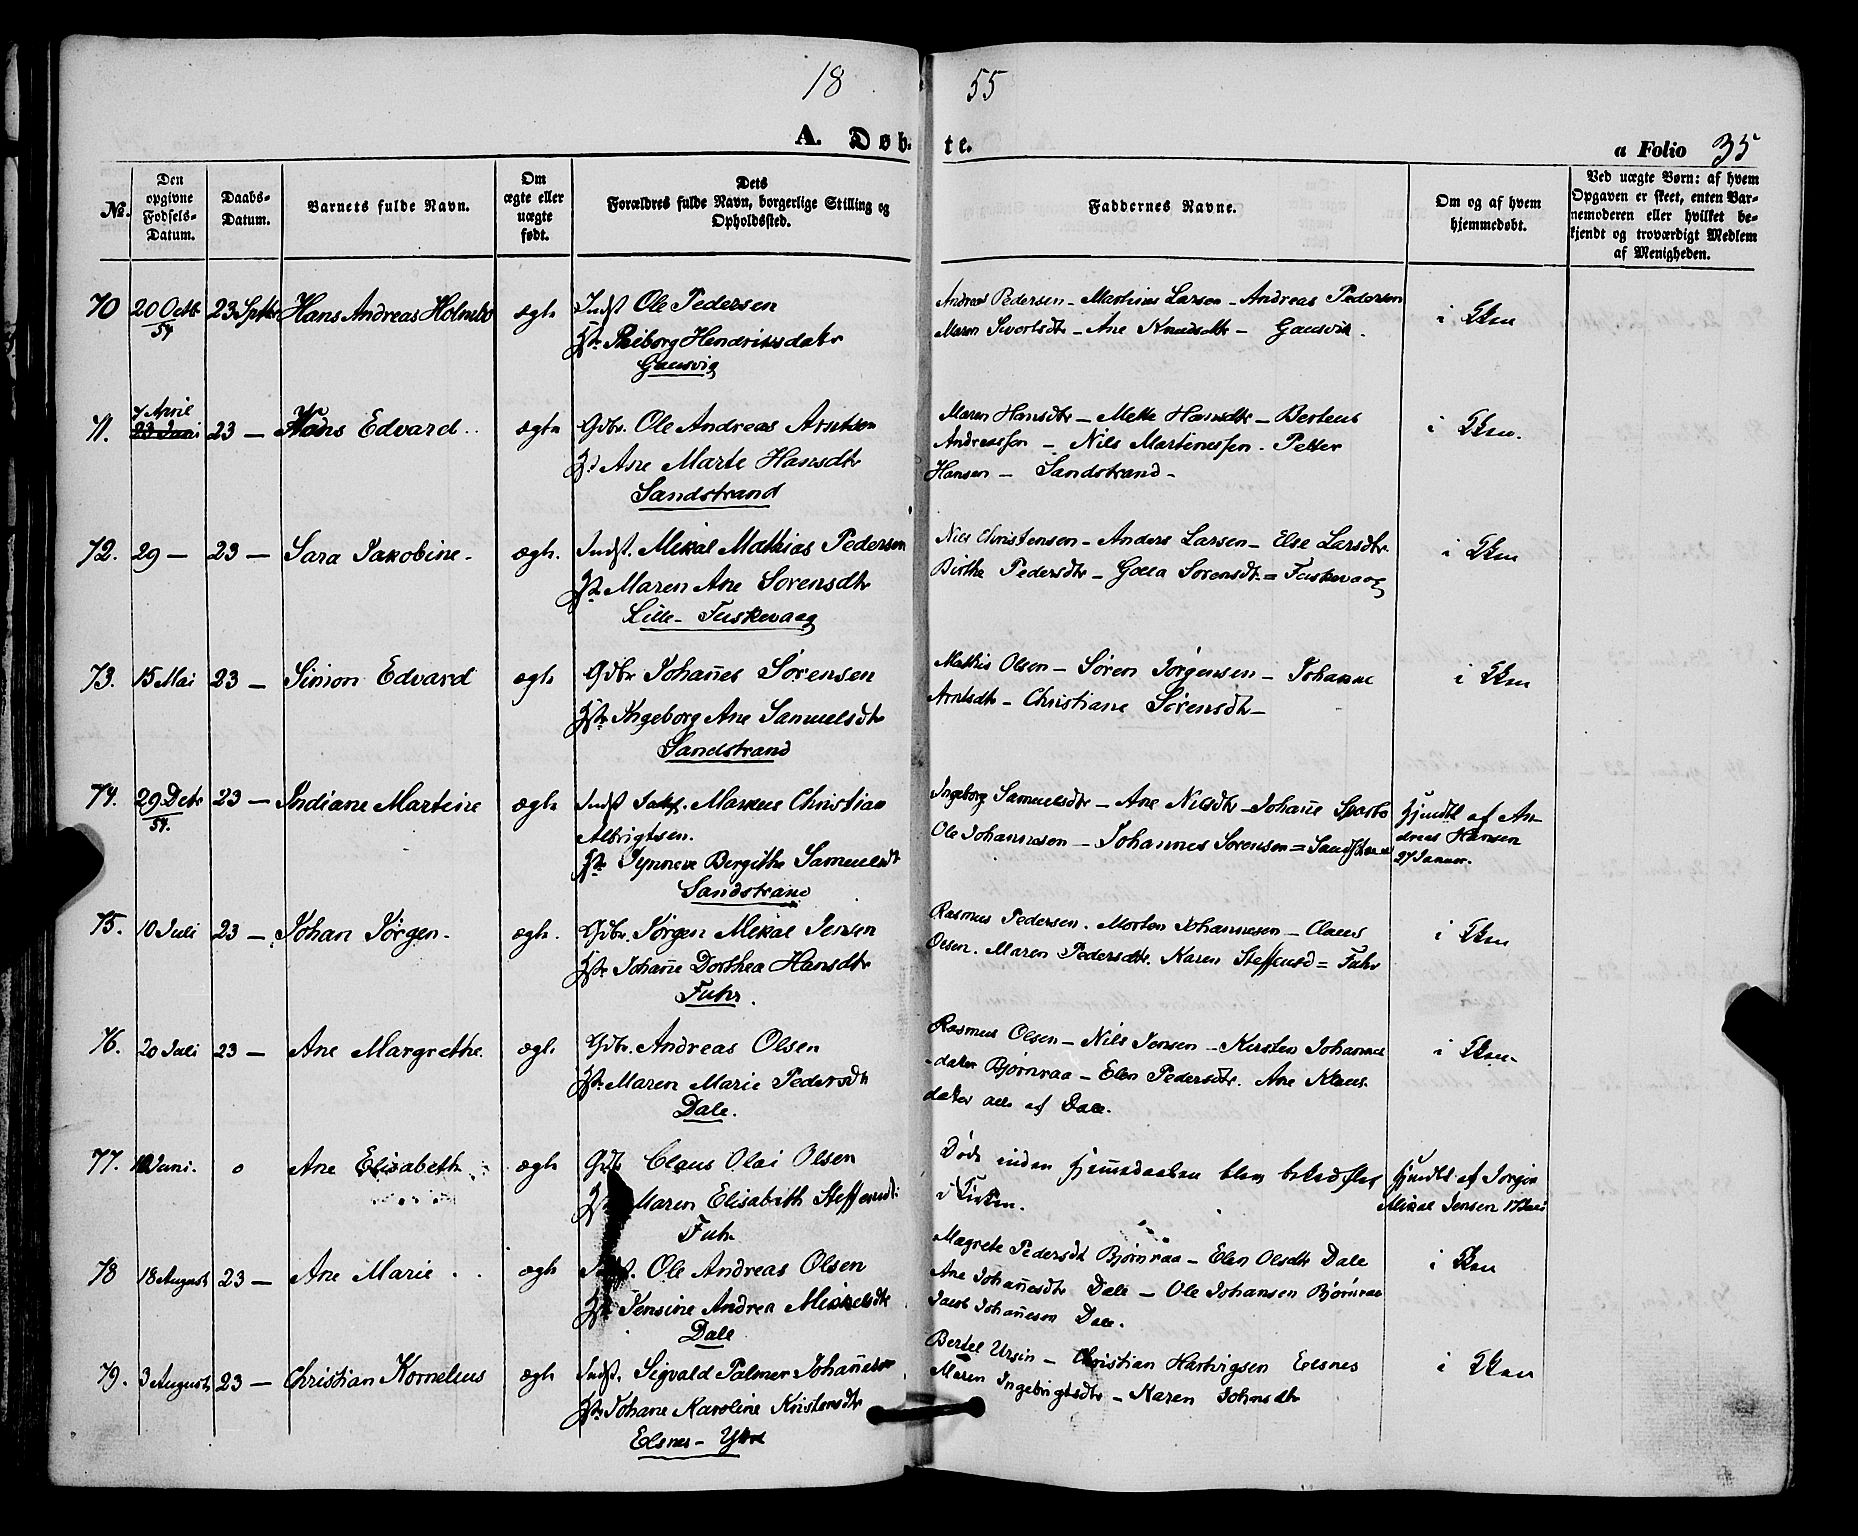 18 55
A. Døbte.
a Folio 35
No.
Den opgivne Fødsels-Datum.
Daabs-Datum.
Barnets fulde Navn.
Om ægte eller uægte født.
Dets Forældres fulde Navn, borgerlige Stilling og Opholdssted.
Faddernes Navne.
Om og af hvem hjemmedøbt.
Ved uægte Børn: af hvem Opgaven er skeet, enten Barnemoderen eller hvilket bekjendt og troværdigt Medlem af Menigheden.
70 20 Octb 54 23 Septbr Hans Andreas ægte Indst Ole Pedersen
Hendriksdatr
Gausvig
Andreas Pedersen - Martinus Larsen - Andreas Pedersen
Maren Sivertsdtr - Ane Knudsdtr - Gausvik.
i Kken
71. 7 April 23 Juni 23 - Hans Edvard ægte Gdbr. Ole Andreas Arntsen
Ane Marte Hansdtr
Sandstrand
Maren Hansdtr - Mette Hansdtr - Berteus
Andreassen - Nils Martinessen - Petter
Hansen - Sandstrand -
i Kken.
72. 29 - 23 - Sara Jakobine - ægte. Indst. Mikal Mathias Pedersen
Maren Ane Sorensdtr
Lille - Fuskevaag
Niels Christensen - Anders Larsen - Else Larsdtr
Birthe Pedersdtr - Golla Sorensdtr = Fuskevaag
i Kken
73. 15 Mai 23 - Simon Edvard ægte Gdbr Johañes Sørensen
Ingeborg Ane Samuelsdtr
Sandstrand
Mathis Olsen - Søren Jørgensen - Johanne
Arntsdtr - Christiane Sørensdtr -
i Kken
74. 29 Debr 54. 23 - Indiane Martine ægte Indst Markus Christian
Albrigtsen.
Synneve Bergithe Samuelsdt
Sandstrand
Ingeborg Samuelsdtr - Ane Nilsdtr - Johañe
Ole Johannesen - Johannes Sorensen = Sandstrand
hjmdbt af An-
dreas Hansen
27 Januar.
75. 10 Juli 23 - Johan Jørgen - ægte. Gdbr. Jørgen Mikal Jensen
Johañe Dorthea Hansdtr
Fuhr.
Rasmus Pedersen. Morten Johannesen - Claus
Olsen. Maren Pedersdtr. Karen Steffensd = Fuhr
i Kken
76. 20 Juli 23 - Ane Margrethe. ægte Gdbr. Andreas Olsen
Maren Marie Pedersdtr
Dale.
Rasmus Olsen - Nils Jensen - Kirsten Johannes
-datter Bjørnraa - Elen Pedersdtr. Ane Klaus-
dater alle af Dale.
i Kken.
77. Juni. 0 Ane Elisabeth ægte Gdb Claus Olai Olsen
Maren Elisabeth Steffensdt
Fuhr
Døde inden hjemedaaben blev bekræftet
i Kirken.
hjmdbt af Jørgen
Mikal Jensen
78 18 August 23 - Ane Marie ægte Indst. Ole Andreas Olsen
Jensine Andrea Mikkelsdtr
Dale
Magrete Pedersdt Bjørnraa - Elen Olsdtr Dale
Ane Johañesdtr Dale - Ole Johansen Bjørnraa
Jacob Johañesen Dale.
i Kken
79. 3 August 23 - Christian Kornelius ægte Indst. Sigvald Palmer Johañesen
Johane Karoline Kristensdtr
Elsnes - Ytre
Bertel Ursin - Christian Hartvigsen Elsnes
Maren Ingebrigtsdtr - Karen Johnsdtr
i Kken